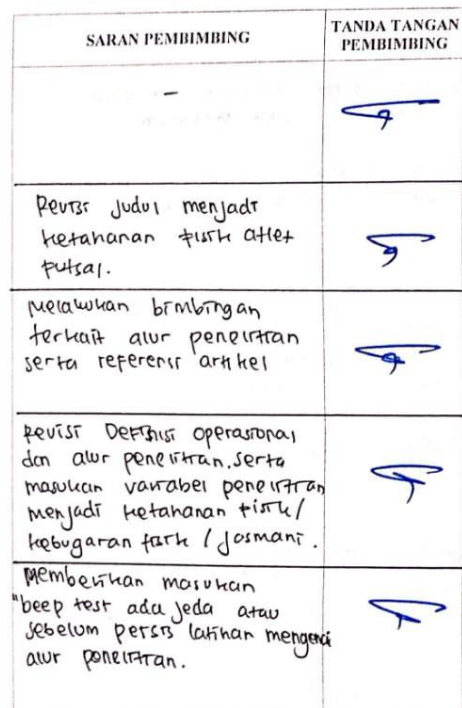 SARAN PEMBIMBING
TANDA TANGAN
PEMBIMBING
-
Revisi judul menjadi
ketahanan fisik atlet
futsal.
Melakukan bimbingan
terkait alur penelitian
serta referensi artikel
Revisi Definisi operasional
dan alur penelitian, serta
masukan variabel penelitian
menjadi ketahanan fisik/
kebugaran fisik / jasmani.
Memberikan masukan
"beep test ada jeda atau
sebelum persis latihan mengenai
alur penelitian.